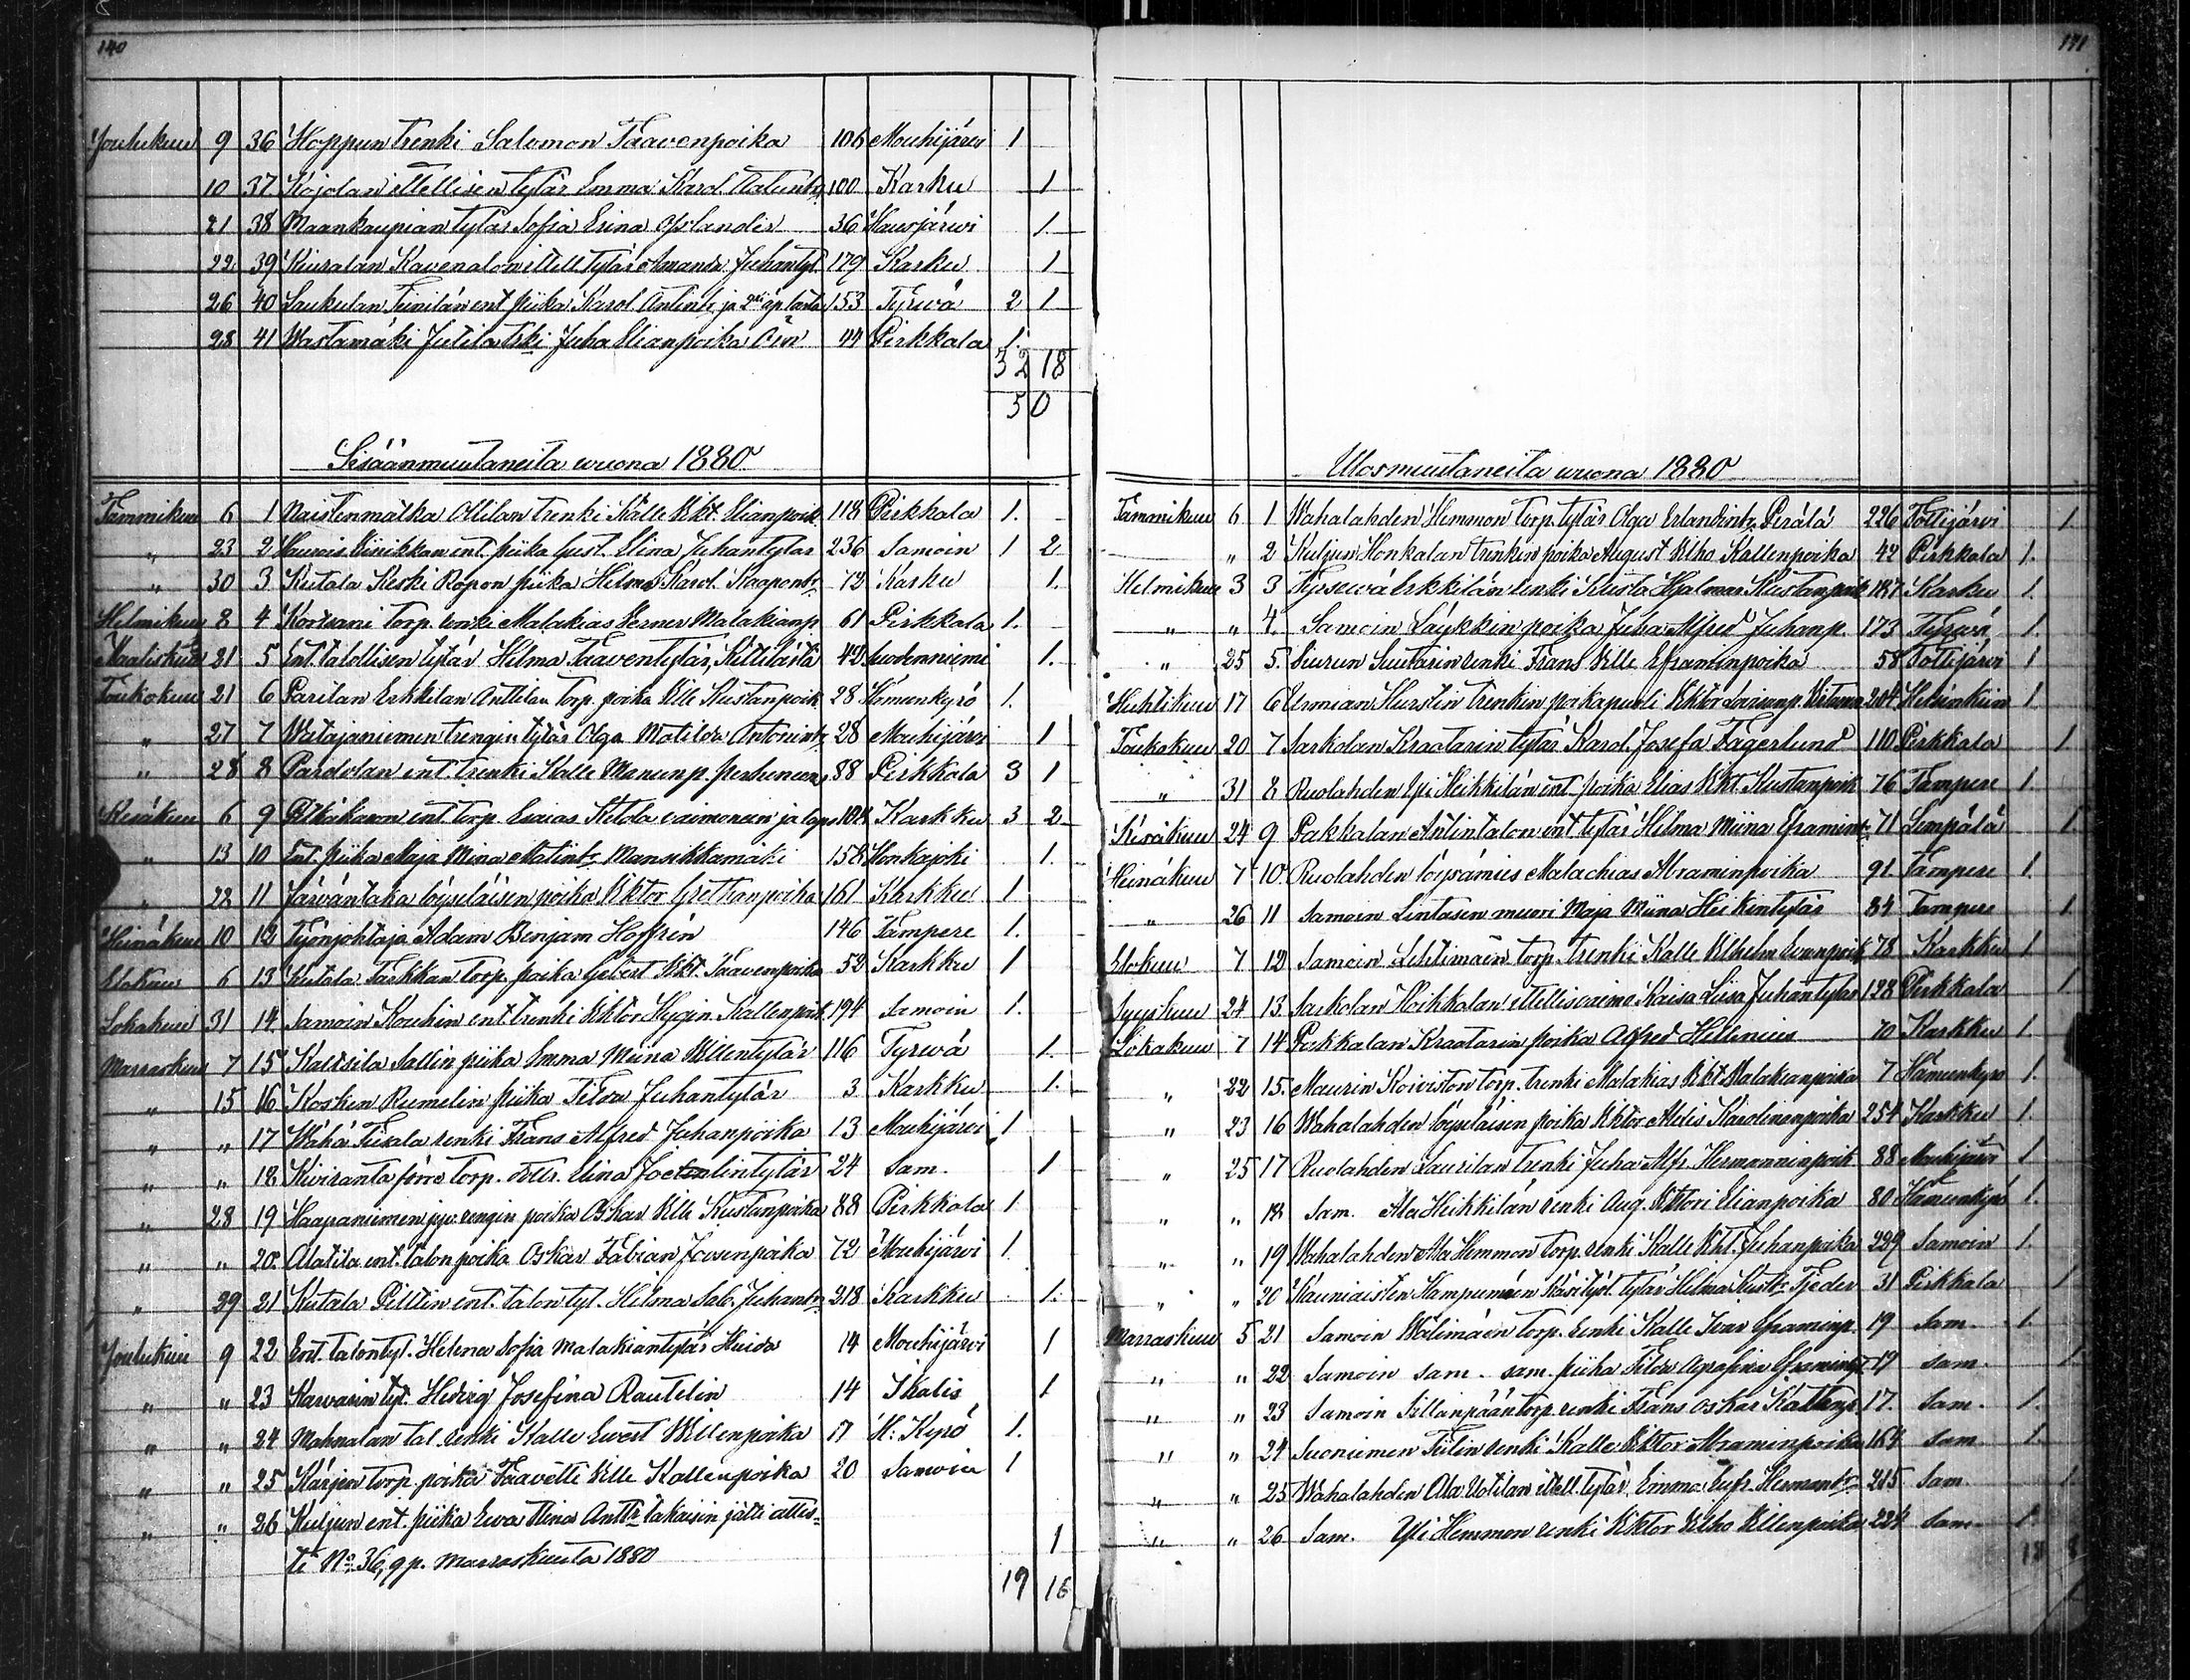 140
Joulukuu 9 36 Hoppun trenki Salomon Taavenpoika 106 Mouhijärvi 1
10 37 Kojolan ittellisen tytär Emma Karol. 100 Karku 1
21 38 Maankaupian tytär Sofia Erina 36 Hausjärwi 1
22 39 Kiuralan ittell. tytär Amanda Juhantyt. 179 Karku 1
26 40 Laukulan ent. piika Karol. Antintr ja 2 äp. lasta 153 Tyrwä 2 1
28 41 Wastamäki Jutila Juha Elianpoika 44 Pirkkala 1.
32 18
50
Sisäänmuuttaneita wuona 1880
Tammikuu 6 1 Naistenmatka Ollilan trenki Kalle Wkt. Elianpoik. 118 Pirkkala 1.
" 23 2 ent. piika Gust. Elina Juhantytär 236 Samoin 1 2
" 30 3 Kutala Keski Ropon piika Helma Karol. Kaapontr. 72 Karku 1.
Helmikuu 8 4 torp. renki Malakias Werner Malakianp. 61 Pirkkala 1.
Maaliskuu 21 5 Ent. talollisen tytär Hilma Taaventytär, 42 Suodenniemi 1.
Toukokuu 21 6 Parilan Erkkilan Anttilan torp. poika Wille Kustanpoik. 28 Hämenkyrö 1.
" 27 7 Watajaniemen trengin tytär Olga Matilda Antonintr. 28 Mouhijärvi 1
" 28 8 ent. trenki Kalle Manunp. perheneen 88 Pirkkala 3 1
Kesäkuu 6 9 ent. torp. Esaias Ketola vaimoneen ja laps. Karkku 3 2
" 13 10 Ent. piika Maja Mina Matintr. Mansikkamäki 158 Honkajoki 1.
" 22 11 Järväntaka löysyläisen poika Wiktor Grethanpoika 161 Karkku 1
Heinäkuu 10 12 Työnjohtaja Adam Benjam. Hoffrén 146 Tampere 1.
Elokuu 6 13 Kutala Tarkkan torp. poika Wkt. Taavenpoika 52 Karkku 1
Lokakuu 31 14 Samoin Kouhin ent. trenki Wiktor Hygin Kallenpoik. 194 Samoin 1.
Marraskuu 7 15 Kaltsila Sallin piika Emma Miina Willentytär 116 Tyrwä 1.
" 15 16 Kosken Rumelin piika Tilda Juhantytär 3 Karkku 1.
" " 17 Wähä Tiisala renki Frans Alfred Juhanpoika 13 Mouhijärvi 1
" " 18 Kiviranta torp. Elina 24 Sam. 1
" 28 19 Haapaniemen rengin poika Oskar Wille Kustanpoika 88 Pirkkala 1
" " 20 Alatila ent. talon poika Oskar Fabian Joosenpoika 72 Mouhijärvi 1.
" 29 21 Kutala Pilttin ent. talon tyt. Hilma Sab. Juhantr. 218 Karkku 1.
Joulukuu 9 22 Ent. talon tyt. Helena Sofia Malakiantytär Huida 14 Mouhijärvi 1
" " 23 Karvarin tyt. Hedvig Josefina Rautelin 14 Ikalis 1
" " 24 Mahnalan tal. renki Kalle Ewert Willenpoika 17 H: Kyrö 1.
" " 25 Kärjen torp. poika Taavetti Wille Kallenpoika 20 Samoin 1
" " 26 Kuljun ent. piika Ewa Miina Anttr. takaisin jätti attes-
ti No 36, 9 p. marraskuuta 1880 1
19 16
141
Ulosmuuttaneita wuona 1880
Tammikuu 6 1 Wahalahden Hemmon torp. tytär Olga Erlandintr. Perälä 226 Tottijärvi 1
" 2 Kuljun Honkalan trenkin poika August Wilho Kallenpoika 42 Pirkkala 1.
Helmikuu 3 3 Erkkilän renki Kusta Hjalmar Kustanpoik. 187 Karku 1.
" " 4 Samoin Läykkin poika Juha Alfred Juhanp. 173 Tyrwä 1.
" 25 5. Siurun Suutarin renki Frans Wille Eframinpoika 58 Tottijärvi 1
Huhtikuu 17 6 Hurstin trenkin poikapuoli Wiktor 204 Helsinkiin 1
Toukokuu 20 7 Sarkolan Kraatarin tytär Karol. Josefa Fagerlund 110 Pirkkala 1
" 31 8 Ruolahden Ypi Heikkilän ent. poika Elias Wkt. Kustanpoik. 76 Tampere 1.
Kesäkuu 24 9 Pakkalan Anttin talon ent. tytär Hilma Miina Eframintr. 71 Lempälä 1
Heinäkuu 7 10. Ruolahden löysämies Malachias Abraminpoika 91 Tampere 1.
" 26 11 Samoin Lintusen muori Maja Miina Heikintytär 84 Tampere 1
Elokuu 7 12 Samoin Lehtimäen torp. trenki Kalle Wilhelm 78 Karkku 1
Syyskuu 24 13. Sarkolan Hoikkalan ittellisvaimo Kaisa Liisa Juhantytär 128 Pirkkala 1
Lokakuu 7 14 Pakkalan Kraatarin poika Alfred Hellenius 70 Karkku 1.
" 22 15. Maurin Koiviston torp. trenki Malakias Wkt. Malakianpoika 7 Hämenkyrö 1.
" 23 16 Wahalahden löysläisen poika Wiktor Karolinanpoika 254 Karkku 1.
" 25 17 Ruolahden Laurilan trenki Juha Alfr. Hermanninpoik. 88 Mouhijärvi 1
" " 18 Sam. Ala Heikkilän renki Aug. Wihtori Elianpoika 80 Hämenkyrö 1.
" " 19 Wahalahden Ala Hemmon torp. renki Kalle Wht. Juhanpoika 229 Samoin 1.
" " 20 Kauniaisten käsityöl. tytär Hilma Kustr. Tjeder 31 Pirkkala 1
Marraskuu 5 21 Samoin Wälimäen torp. renki Kalle Ivar Eframinp. 19 Sam. 1.
" " 22 Samoin sam. sam. piika Tilda Agrafina Eframintyt. 19 Sam. 1.
" " 23 Samoin Sillanpään torp. renki Frans Oskar Kallenp. 17. Sam. 1.
" " 24 Suoniemen Tiilin renki Kalle Wiktor Abraminpoika 164 Sam. 1.
" " 25 Wahalahden Ala Uotilan ittell. tytär Emma Eufr. Hermantr. 215 Sam. 1
" " 26 Sam. Yli Hemmon renki Wiktor Wilho Willenpoika 224 Sam. 1
18 8